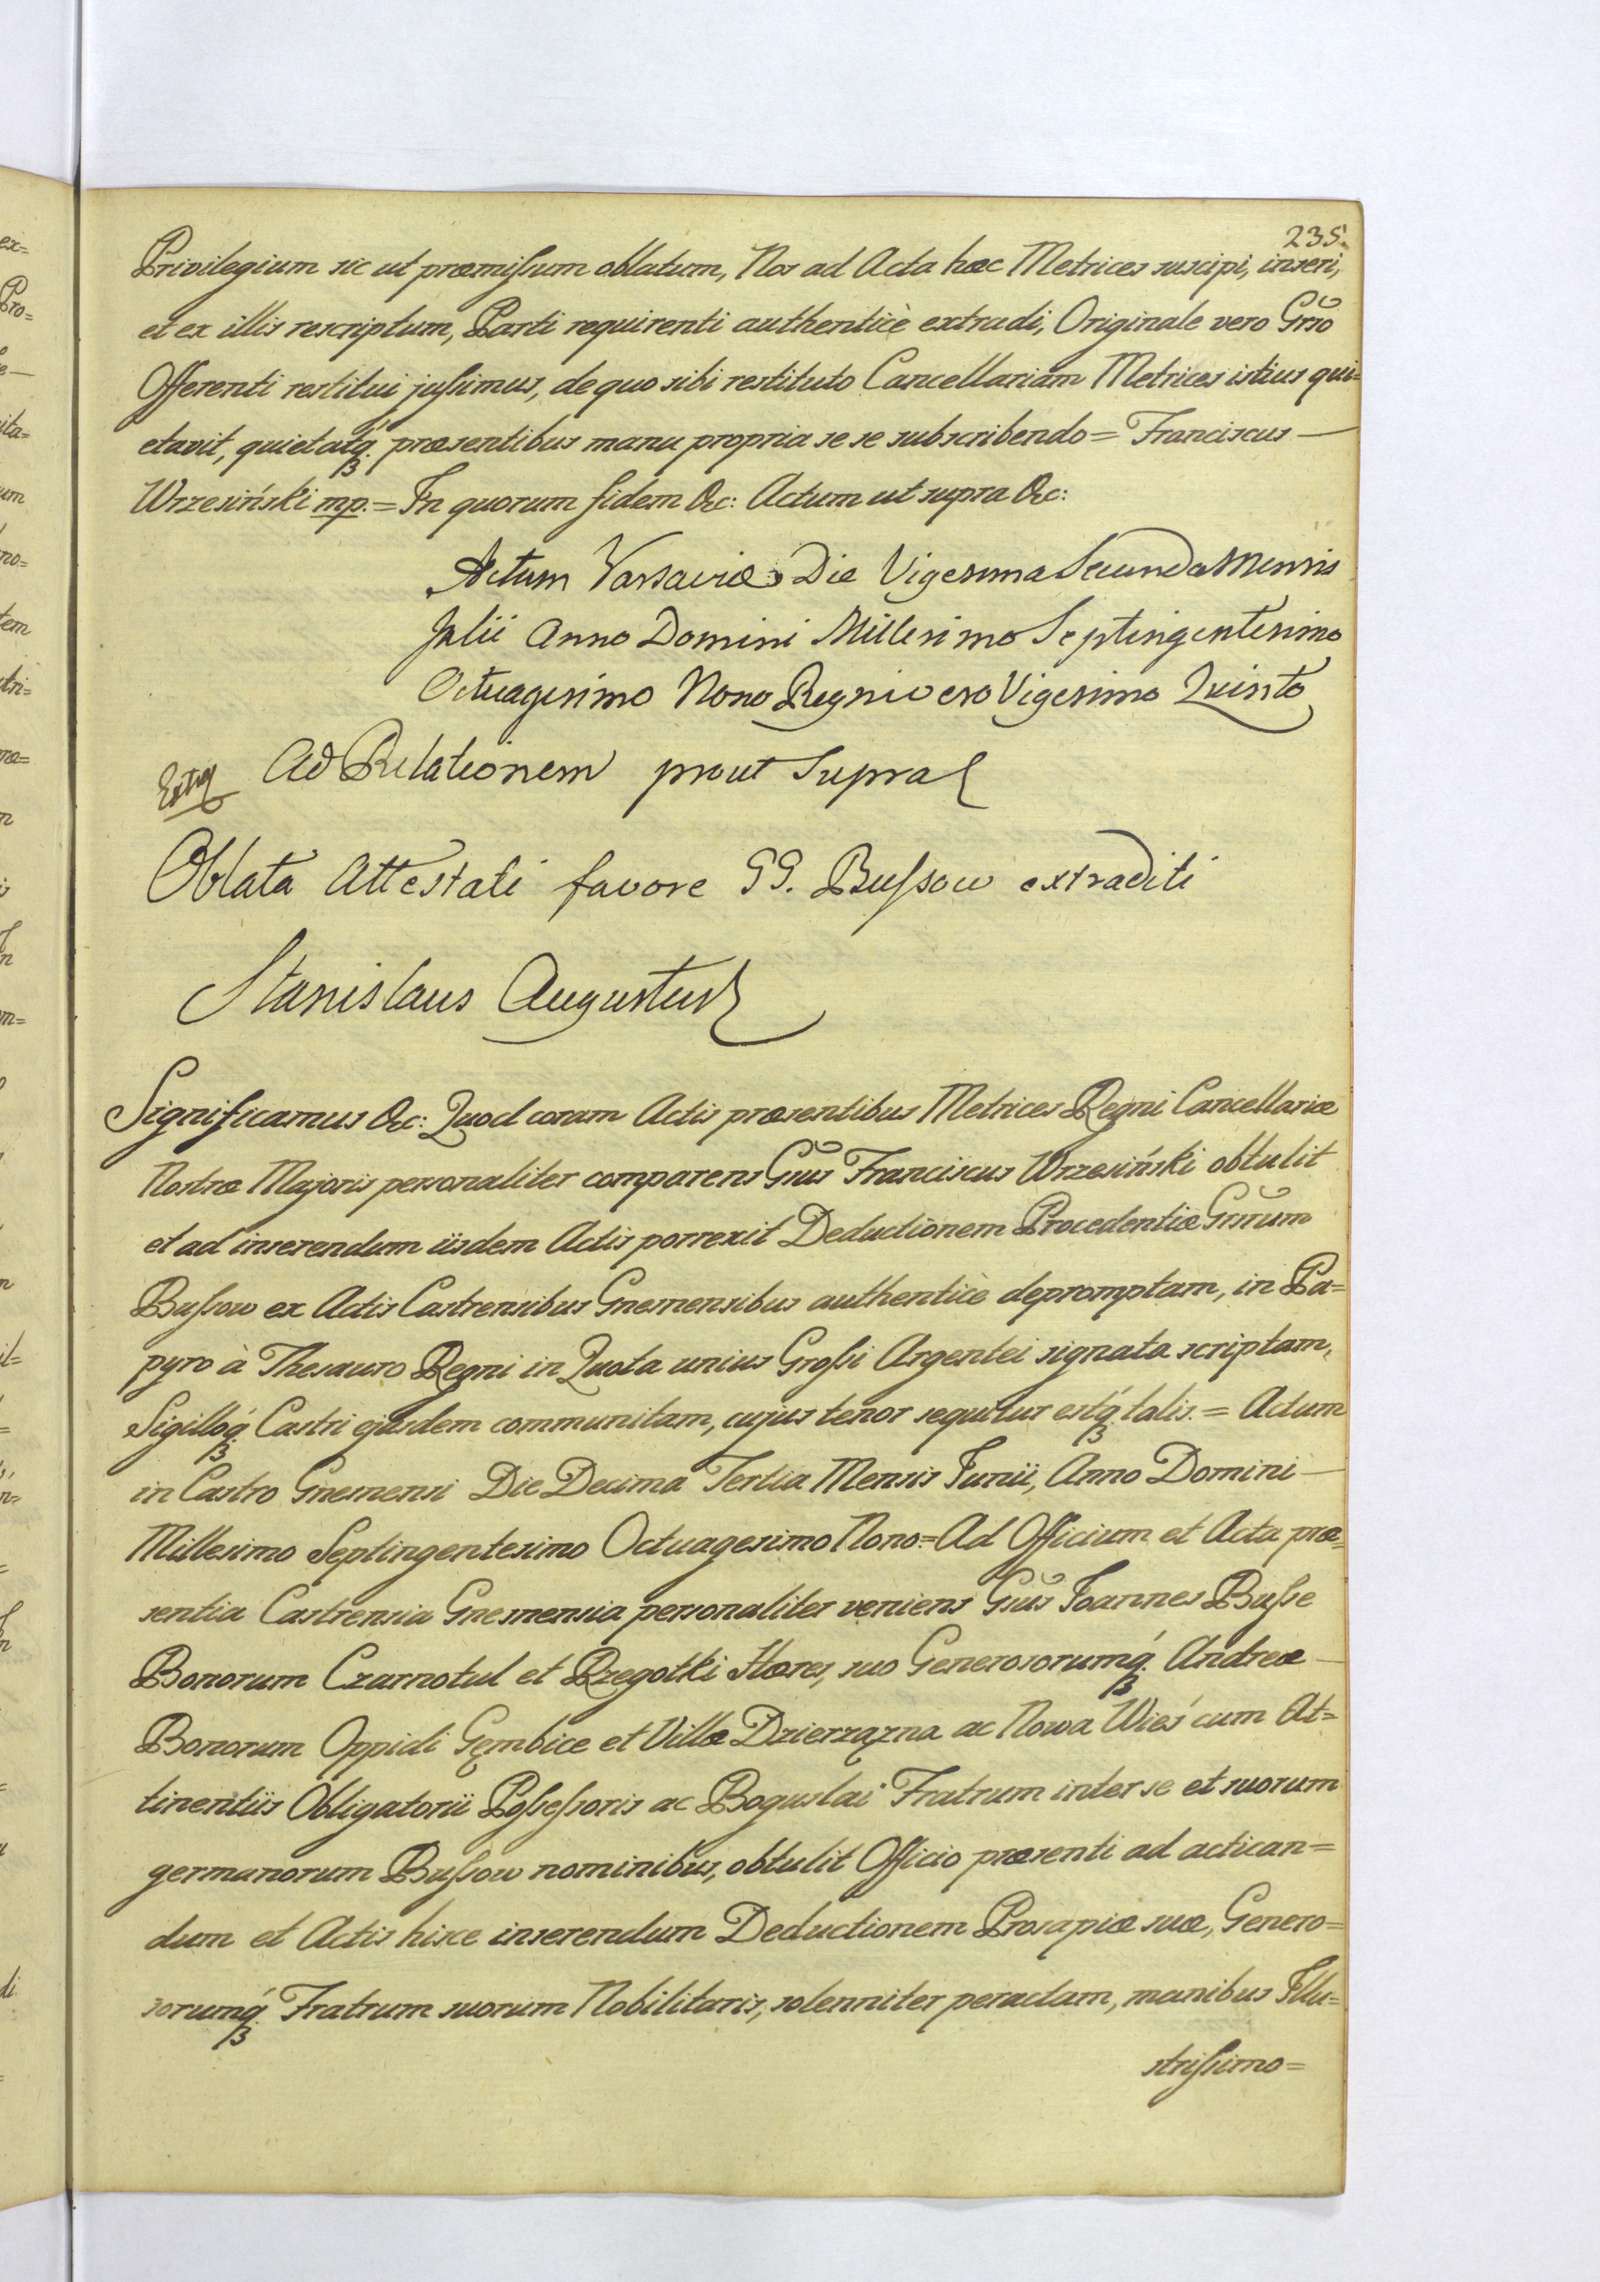 235.
Privilegium sic ut præmissum oblatum, Nos ad Acta hæc Metrices suscipi, inseri,
et ex illis rescriptum, Parti requirenti authenticè extradi, Originale vero Grso
Offerenti restitui jussimus, de quo sibi restituto Cancellariam Metrices istius qui=
etavit, quietatq́ præsentibus manu propria se se subscribendo = Franciscus —
Wrzesiński mp. = In quorum fidem &c: Actum ut supra &c:
Actum Varsaviæ Die Vigesima Secunda Mensis
Julii Anno Domini Millesimo Septingentesimo
Octuagesimo Nono Regni vero Vigesimo Quinto
Ad Relationem prout Supra
Oblata Attestati favore GG. Bussow extraditi
Stanislaus Augustus
Significamus &c: Quod coram Actis præsentibus Metrices Regni Cancellariæ
Nostræ Majoris personaliter comparens Gsus Franciscus Wrzesiński obtulit
et ad inserendum iisdem Actis porrexit Deductionem Procedentiæ Grsrum
Bussow ex Actis Castrensibus Gnesnensibus authenticè depromptam, in Pa=
pyro à Thesauro Regni in Quota unius Grossi Argentei signata scriptam,
Sigilloq́ Castri ejusdem communitam, cujus tenor sequitur estq́ talis. = Actum
in Castro Gnesnensi Die Decima Tertia Mensis Junii, Anno Domini —
Millesimo Septingentesimo Octuagesimo Nono. = Ad Officium et Acta præ=
sentia Castrensia Gnesnensia personaliter veniens Gsus Joannes Busse
Bonorum Czarnotul et Rzegotki Hæres, suo Generosorumq́ Andreæ —
Bonorum Oppidi Gęmbice et Villæ Dzierzązna ac Nowa Wieś cum At=
tinentiis Obligatorii Possessoris ac Boguslai Fratrum inter se et suorum
germanorum Bussow nominibus, obtulit Officio præsenti ad actican=
dum et Actis hisce inserendum Deductionem Prosapiæ suæ, Genero=
sorumq́ Fratrum suorum Nobilitaris, solenniter peractam, manibus Illu=
strissimo=